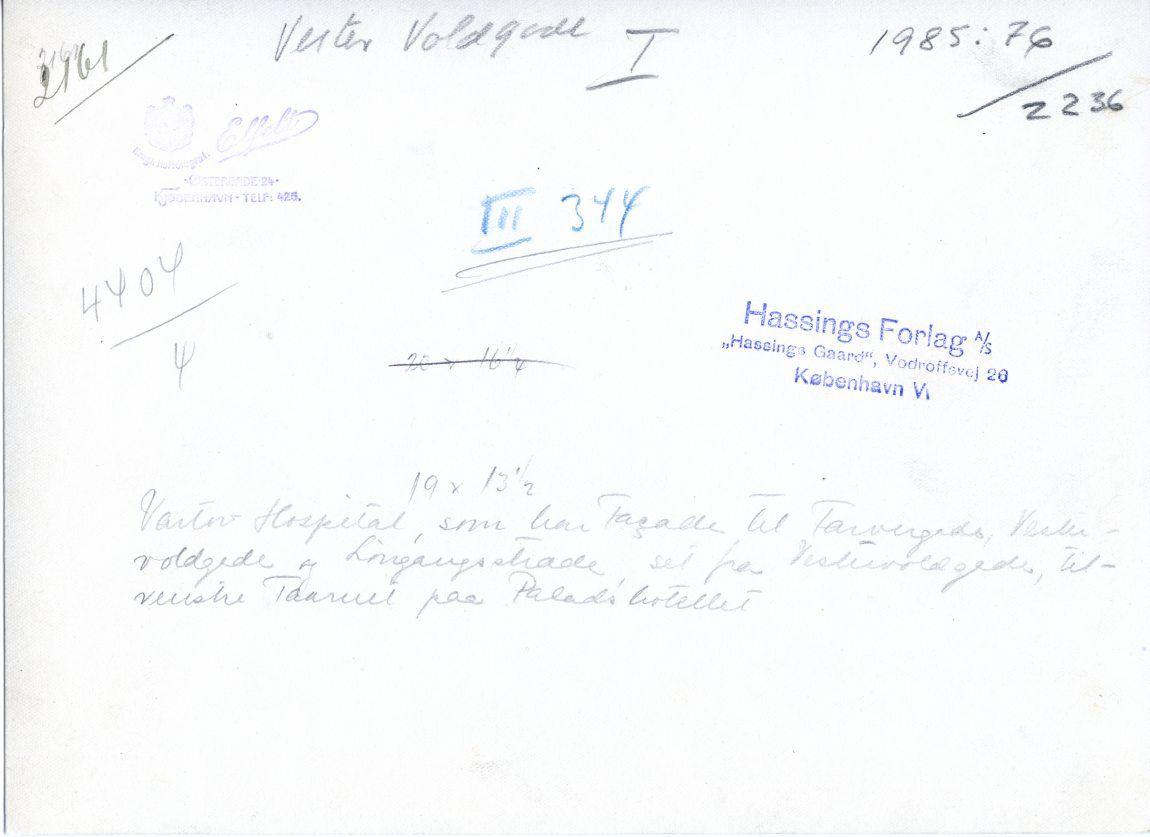 2161
Vester Voldgade I
1985: 76
2236
Elfelt
ØSTERGADE 24
KJØBENHAVN · TELF: 425.
III 344
4404
4
Hassings Forlag A/S
„Hassings Gaard“, Vodroffsvej 26
København V.
20 x 16½
19 x 13½
Vartov Hospital, som har Façade til Farvergade, Vester-
voldgade og Löngangsstræde, set fra Vestervoldgade, til-
venstre Taarnet paa Paladshotellet